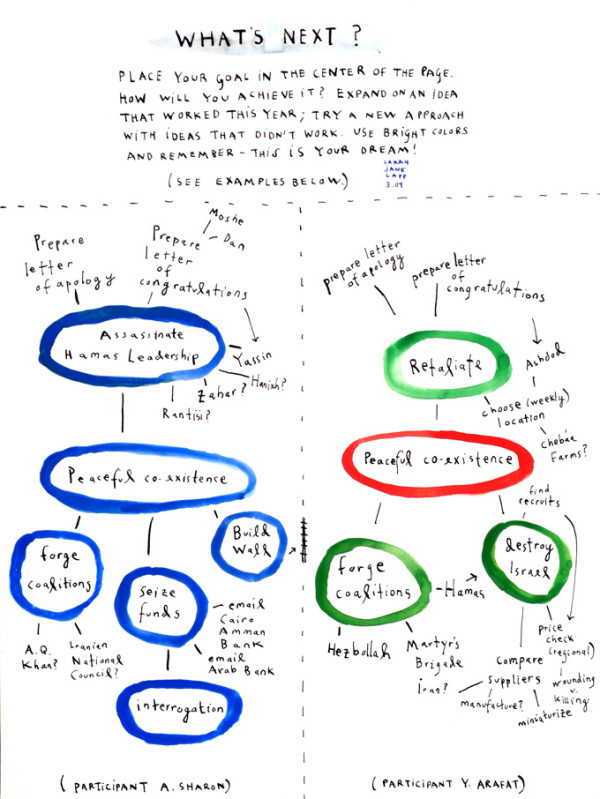 WHAT'S NEXT ?
PLACE YOUR GOAL IN THE CENTER OF THE PAGE.
HOW WILL YOU ACHIEVE IT? EXPAND ON AN IDEA
THAT WORKED THIS YEAR; TRY A NEW APPROACH
WITH IDEAS THAT DIDN'T WORK. USE BRIGHT COLORS
AND REMEMBER - THIS IS YOUR DREAM!
SARAH
JANE
LAPP
3.04
(SEE EXAMPLES BELOW.)
Prepare
letter
of apology
Prepare
letter
of
congratulations
Moshe
Dan
Assassinate
Hamas Leadership
Yassin
Haniah?
Zahar?
Rantisi?
Peaceful co-existence
forge
coalitions
A.Q.
Khan?
Iranian
National
Council?
seize
funds
email
Cairo
Amman
Bank
email
Arab Bank
Build
Wall
interrogation
(PARTICIPANT A. SHARON)
prepare letter
of apology
prepare letter
of
congratulations
Retaliate
Ashdod
choose (weekly)
location
Chebáa
Farms?
Peaceful co-existence
find
recruits
forge
coalitions
Hamas
destroy
Israel
Hezbollah
Martyr's
Brigade
price
check
(regional)
wounding
v.
killing
compare
suppliers
Iran?
manufacture?
miniaturize
(PARTICIPANT Y. ARAFAT)